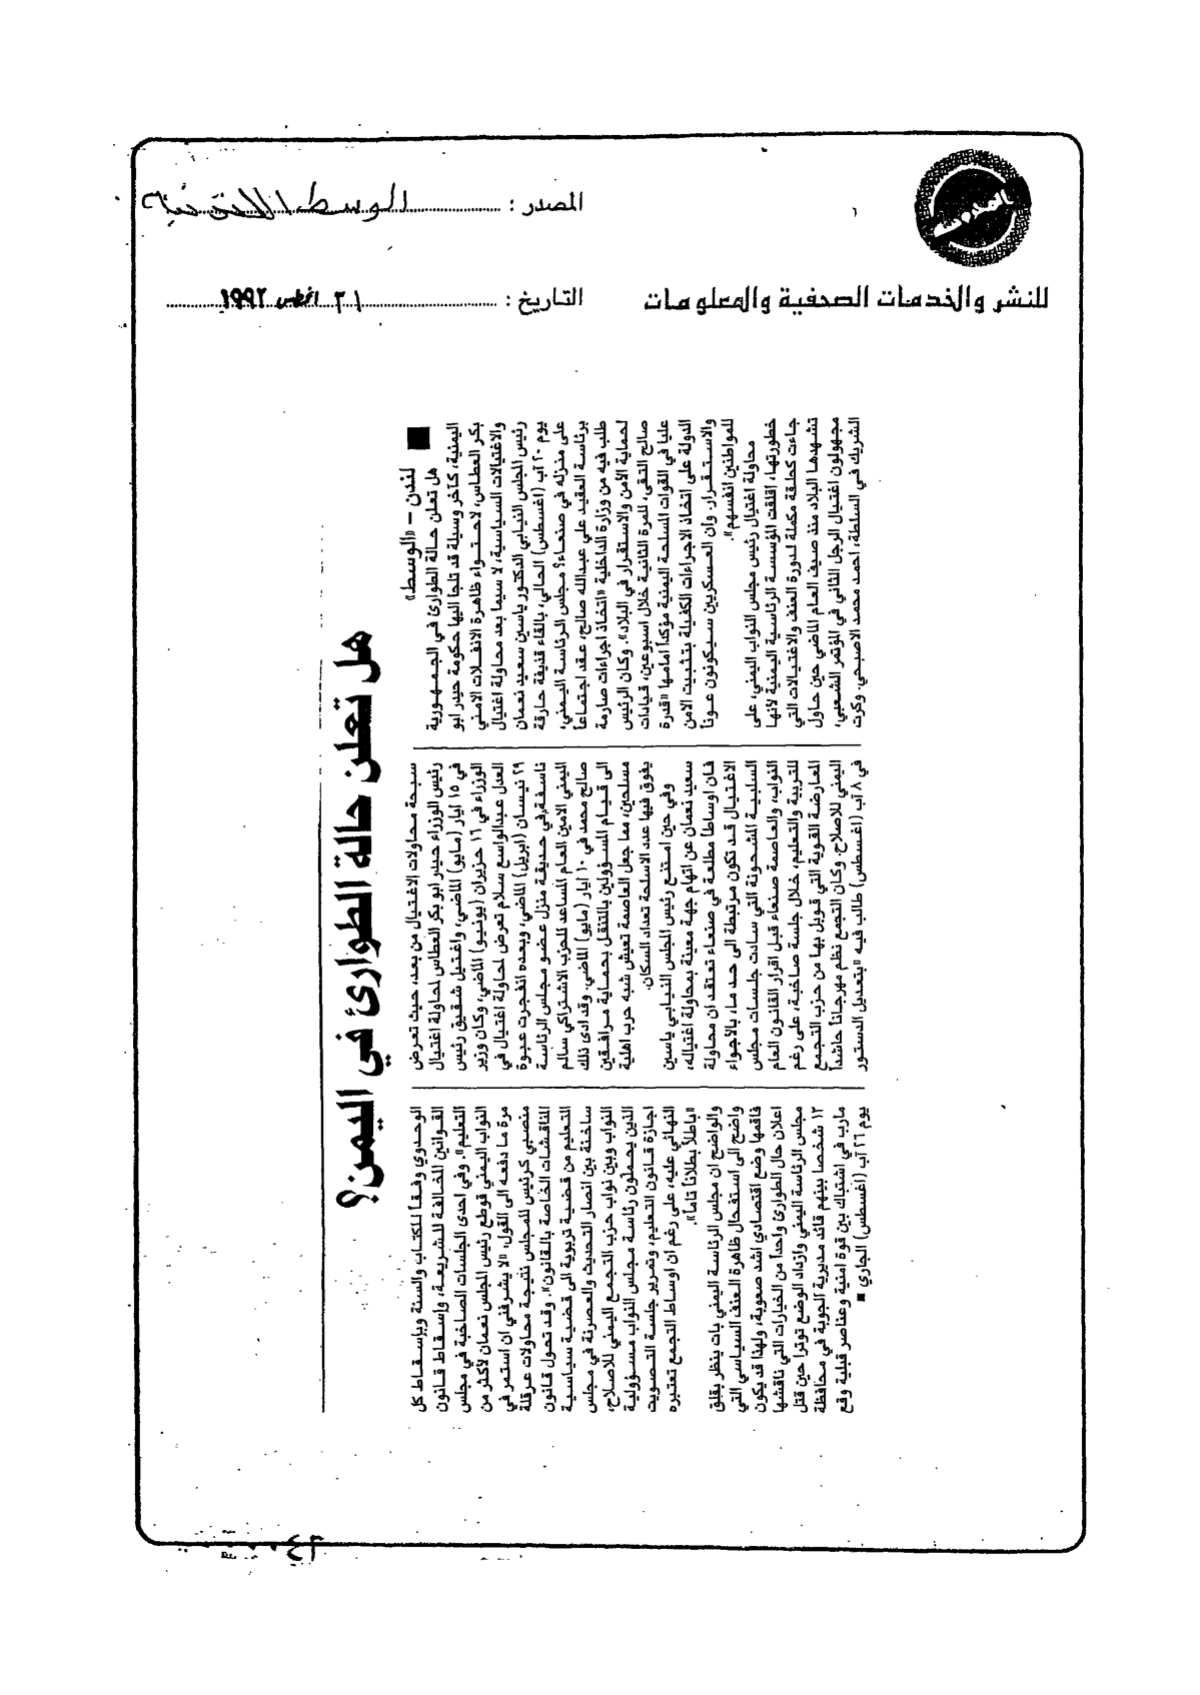 المصدر : الوسط اللندنية
التاريخ : ٣١ اغسطس ١٩٩٢
للنشر والخدمات الصحفية والمعلومات
هل تعلن حالة الطوارئ في اليمن؟
لندن – «الوسط»
هل تعلن حالة الطوارئ في الجمهورية
اليمنية، كآخر وسيلة قد تلجأ اليها حكومة حيدر ابو
بكر العطاس، لاحتواء ظاهرة الانفلات الامني
والاغتيالات السياسية، لا سيما بعد محاولة اغتيال
رئيس المجلس النيابي الدكتور ياسين سعيد نعمان
يوم ٢٠ آب (اغسطس) الحالي، بالقاء قذيفة حارقة
على منزله في صنعاء؟ مجلس الرئاسة اليمني،
برئاسة العقيد علي عبدالله صالح، عقد اجتماعاً
طلب فيه من وزارة الداخلية «اتخاذ اجراءات صارمة
لحماية الامن والاستقرار في البلاد». وكان الرئيس
صالح التقى، للمرة الثانية خلال اسبوعين، قيادات
عليا في القوات المسلحة اليمنية مؤكداً امامها «قدرة
الدولة على اتخاذ الاجراءات الكفيلة بتثبيت الامن
والاستقرار. وان العسكريين سيكونون عوناً
للمواطنين انفسهم».
محاولة اغتيال رئيس مجلس النواب اليمني، على
خطورتها، اقلقت المؤسسة الرئاسية اليمنية لأنها
جاءت كحلقة مكملة لدورة العنف والاغتيالات التي
تشهدها البلاد منذ صيف العام الماضي حين حاول
مجهولون اغتيال الرجل الثاني في المؤتمر الشعبي،
الشريك في السلطة، احمد محمد الاصبحي. وكرت
سبحة محاولات الاغتيال من بعد، حيث تعرض
رئيس الوزراء حيدر ابو بكر العطاس لمحاولة اغتيال
في ١٥ ايار (مايو) الماضي، واغتيل شقيق رئيس
الوزراء في ١٦ حزيران (يونيو) الماضي، وكان وزير
العدل عبدالواسع سلام تعرض لمحاولة اغتيال في
٢٩ نيسان (ابريل) الماضي، وبعده انفجرت عبوة
ناسفة في حديقة منزل عضو مجلس الرئاسة
اليمني الامين العام المساعد للحزب الاشتراكي سالم
صالح محمد في ١٠ ايار (مايو) الماضي. وقد ادى ذلك
الى قيام المسؤولين بالتنقل بحماية مرافقين
مسلحين، مما جعل العاصمة تعيش شبه حرب اهلية
يفوق فيها عدد الاسلحة تعداد السكان.
وفي حين امتنع رئيس المجلس النيابي ياسين
سعيد نعمان عن اتهام جهة معينة بمحاولة اغتياله،
فان اوساطاً مطلعة في صنعاء تعتقد ان محاولة
الاغتيال قد تكون مرتبطة الى حد ما، بالأجواء
السلبية المشحونة التي سادت جلسات مجلس
النواب، والعاصمة صنعاء قبل اقرار القانون العام
للتربية والتعليم، خلال جلسة صاخبة، على رغم
المعارضة القوية التي قوبل بها من حزب التجمع
اليمني للاصلاح. وكان التجمع نظم مهرجاناً حاشداً
في ٨ آب (اغسطس) طالب فيه «بتعديل الدستور
الوحدوي وفقاً للكتاب والسنة وبإسقاط كل
القوانين المخالفة للشريعة، وإسقاط قانون
التعليم». وفي احدى الجلسات الصاخبة في مجلس
النواب اليمني قوطع رئيس المجلس نعمان لأكثر من
مرة ما دفعه الى القول، «لا يشرفني ان استمر في
منصبي كرئيس للمجلس نتيجة محاولات عرقلة
المناقشات الخاصة بالقانون». وقد تحول قانون
التعليم من قضية تربوية الى قضية سياسية
ساخنة بين انصار التحديث والعصرنة في مجلس
النواب وبين نواب حزب التجمع اليمني للاصلاح،
الذين يحملون رئاسة مجلس النواب مسؤولية
اجازة قانون التعليم، وتمرير جلسة التصويت
النهائي عليه، على رغم ان اوساط التجمع تعتبره
«باطلاً بطلاناً تاماً».
والواضح ان مجلس الرئاسة اليمني بات ينظر بقلق
واضح الى استفحال ظاهرة العنف السياسي التي
فاقمها وضع اقتصادي اشد صعوبة، ولهذا قد يكون
اعلان حال الطوارئ واحداً من الخيارات التي ناقشها
مجلس الرئاسة اليمني وازداد الوضع توترا حين قتل
١٣ شخصا بينهم قائد مديرية الجوبة في محافظة
مارب في اشتباك بين قوة امنية وعناصر قبلية وقع
يوم ٢٦ آب (اغسطس) الجاري ■